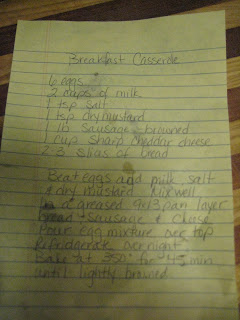 Breakfast Casserole
6 eggs
2 cups of milk
1 tsp salt
1 tsp dry mustard
1 lb sausage browned
1 cup sharp cheddar cheese
2-3 slices of bread
Beat eggs and milk, salt
& dry mustard. Mix well
In a greased 9x13 pan layer
bread sausage & cheese
Pour egg mixture over top
Refridgerate overnight
Bake at 350° for 45 min
until lightly browned